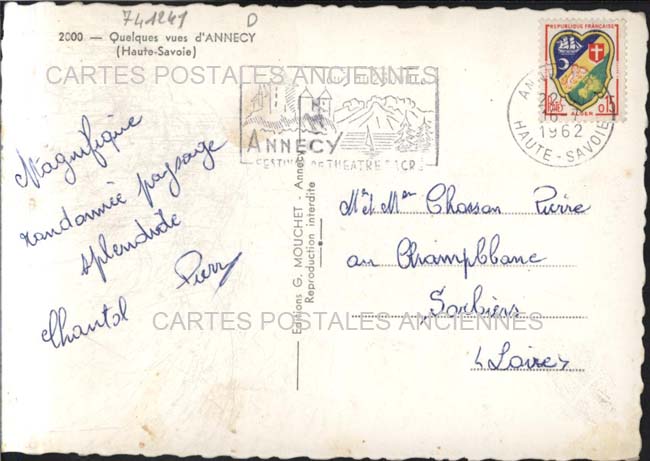 741241 D
2000 — Quelques vues d'ANNECY
(Haute-Savoie)
CARTES POSTALES ANCIENNES
ANNECY
FESTIVAL DE THEATRE SACRE
REPUBLIQUE FRANÇAISE
0,15
ALGER
1962
HAUTE-SAVOIE
Magnifique
randonnée paysage
splendide
Chantal Pierry
Editions G. MOUCHET - Annecy
Reproduction interdite
Mr et Mme Chosson Pierre
au Champblanc
Sorbiers
(Loire)
CARTES POSTALES ANCIENNES